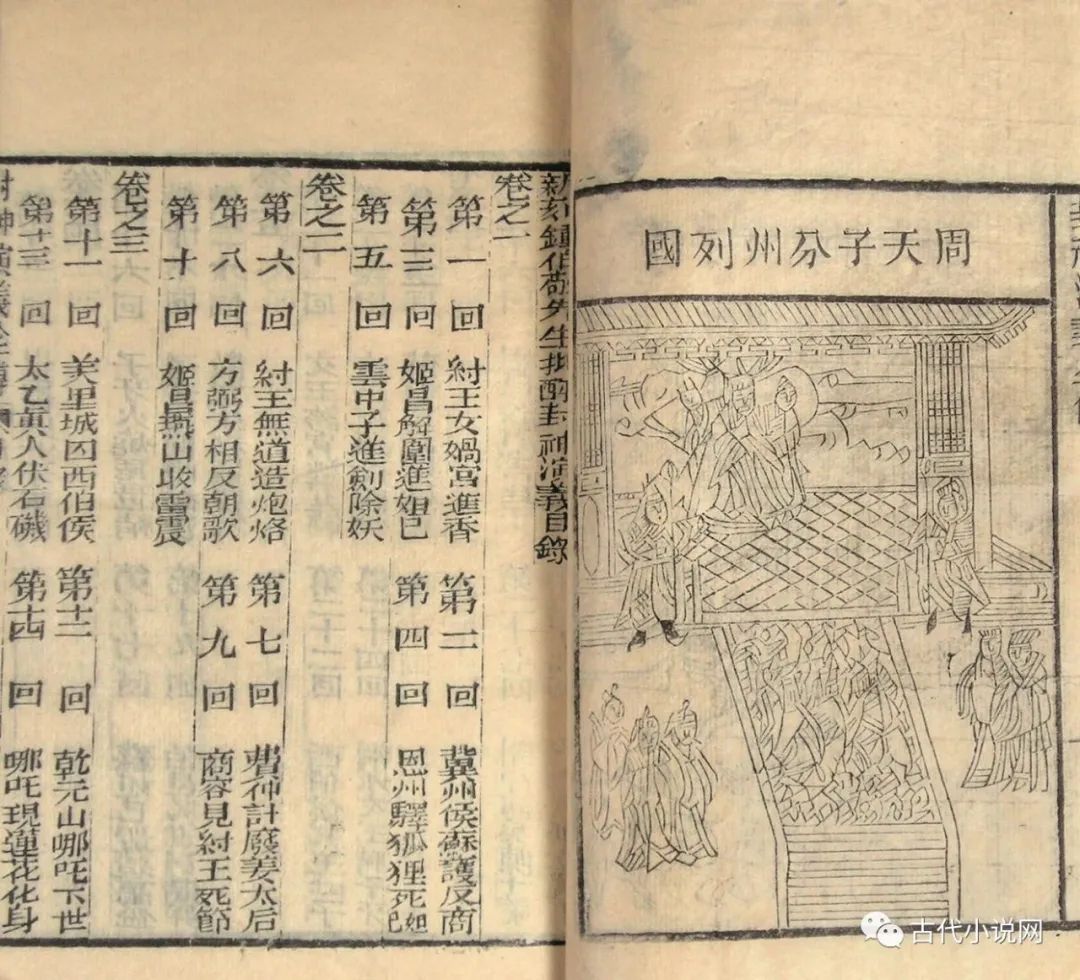 周天子分州列國
新刻鍾伯敬先生批評封神演義目錄
卷之一
第一回 紂王女媧宮進香 第二回 冀州侯蘇護反商
第三回 姬昌解圍進妲己 第四回 恩州驛狐狸死妲己
第五回 雲中子進劍除妖
卷之二
第六回 紂王無道造炮烙 第七回 費仲計廢姜太后
第八回 方弼方相反朝歌 第九回 商容見紂王死節
第十回 姬昌燕山收雷震
卷之三
第十一回 羑里城囚西伯侯 第十二回 乾元山哪吒下世
第十三回 太乙真人伏石磯 第十四回 哪吒現蓮花化身
封神演義
古代小说网